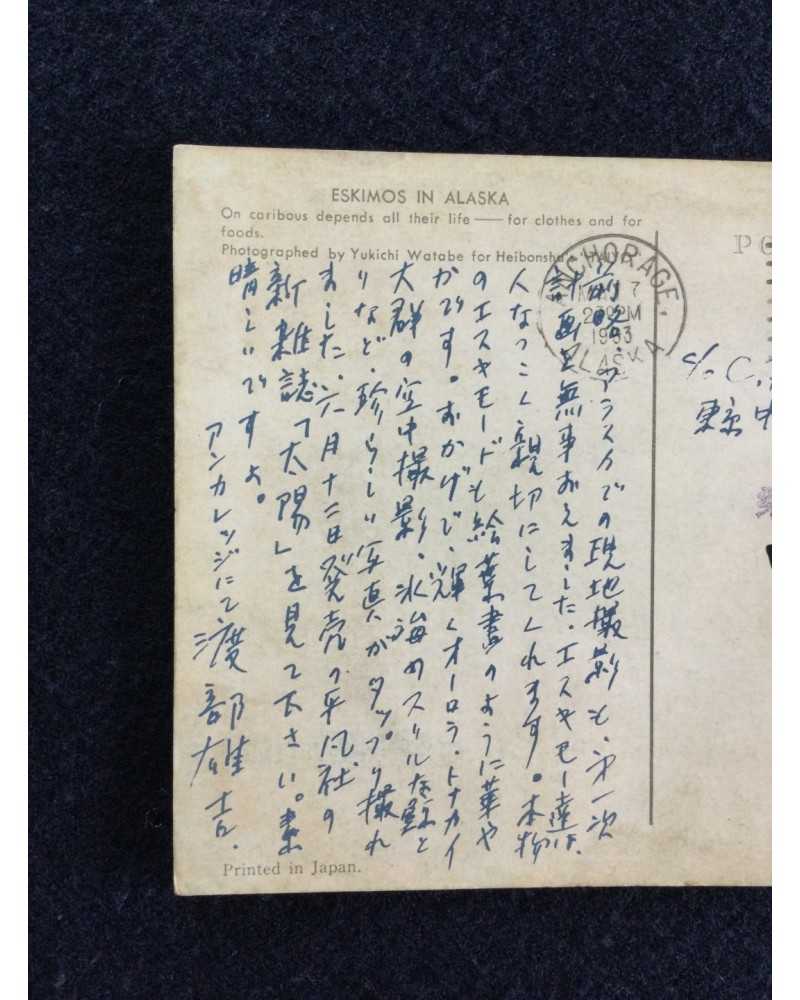 ESKIMOS IN ALASKA
On caribous depends all their life — for clothes and for
foods.
Photographed by Yukichi Watabe for Heibonsha's "TAIY
ANCHORAGE,
7
2 PM
1963
ALASKA
PO
前略、アラスカでの現地撮影も、第一次
計画を無事おえました。エスキモー達は、
人なつこく親切にしてくれます。本物
のエスキモードも絵葉書のように華や
かです。おかげで、輝くオーロラ・トナカイ
大群の空中撮影・氷海のスリルな鯨と
りなど、珍らしい写真がタップリ撮れ
ました。六月十二日発売の平凡社の
新雑誌「太陽」を見て下さい。素
晴しいですよ。
アンカレッジにて 渡部雄吉.
c/o C.
東京中
Printed in Japan.